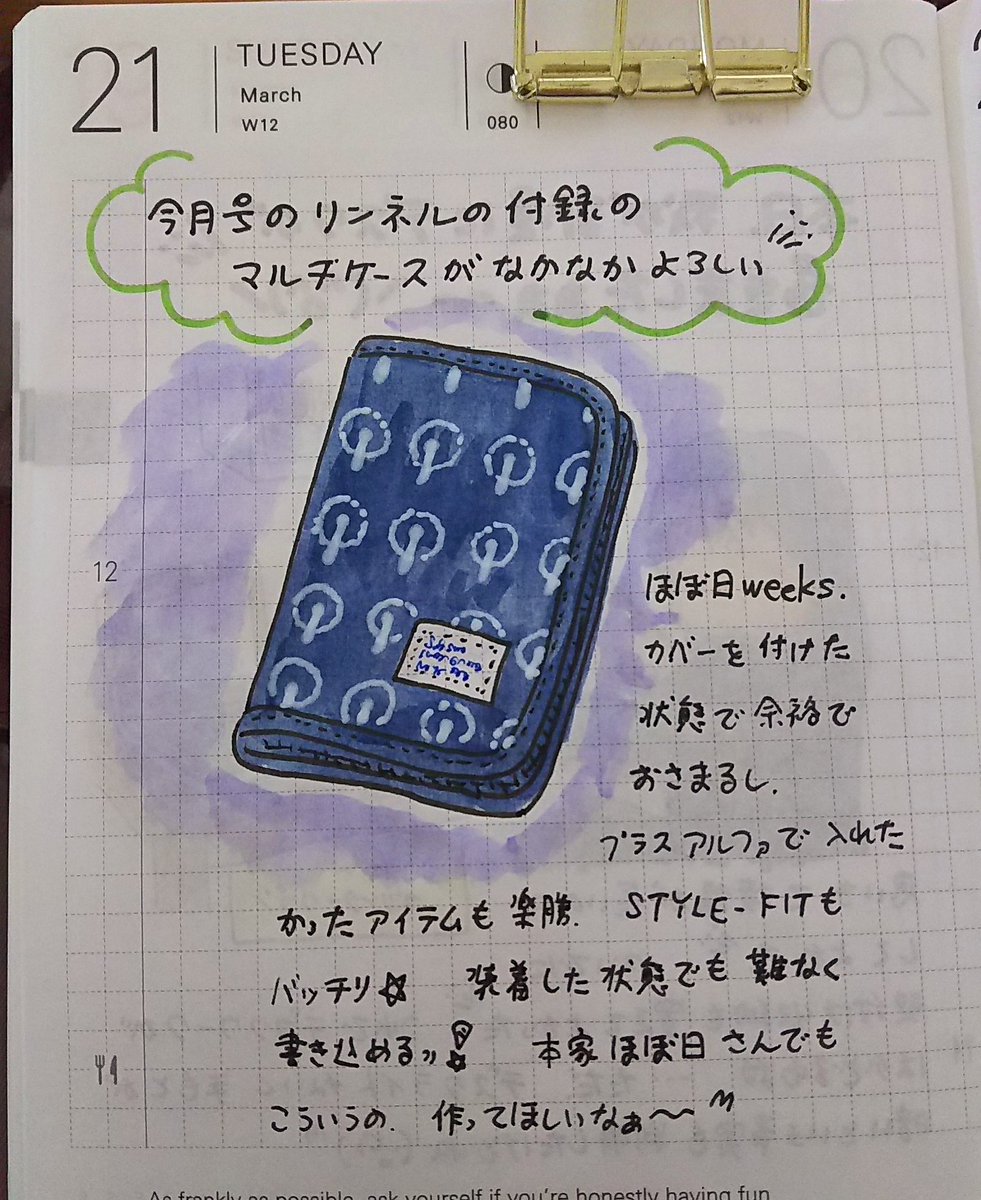 21
TUESDAY
March
W12
080
今月号のリンネルの付録の
マルチケースがなかなかよろしい
12
ほぼ日weeks.
カバーを付けた
状態で余裕で
おさまるし.
プラスアルファで入れた
かったアイテムも楽勝. STYLE-FITも
バッチリ☆ 装着した状態でも難なく
書き込める〃! 本家ほぼ日さんでも
こういうの. 作ってほしいなぁ〜
As frankly as possible, ask yourself if you're honestly having fun